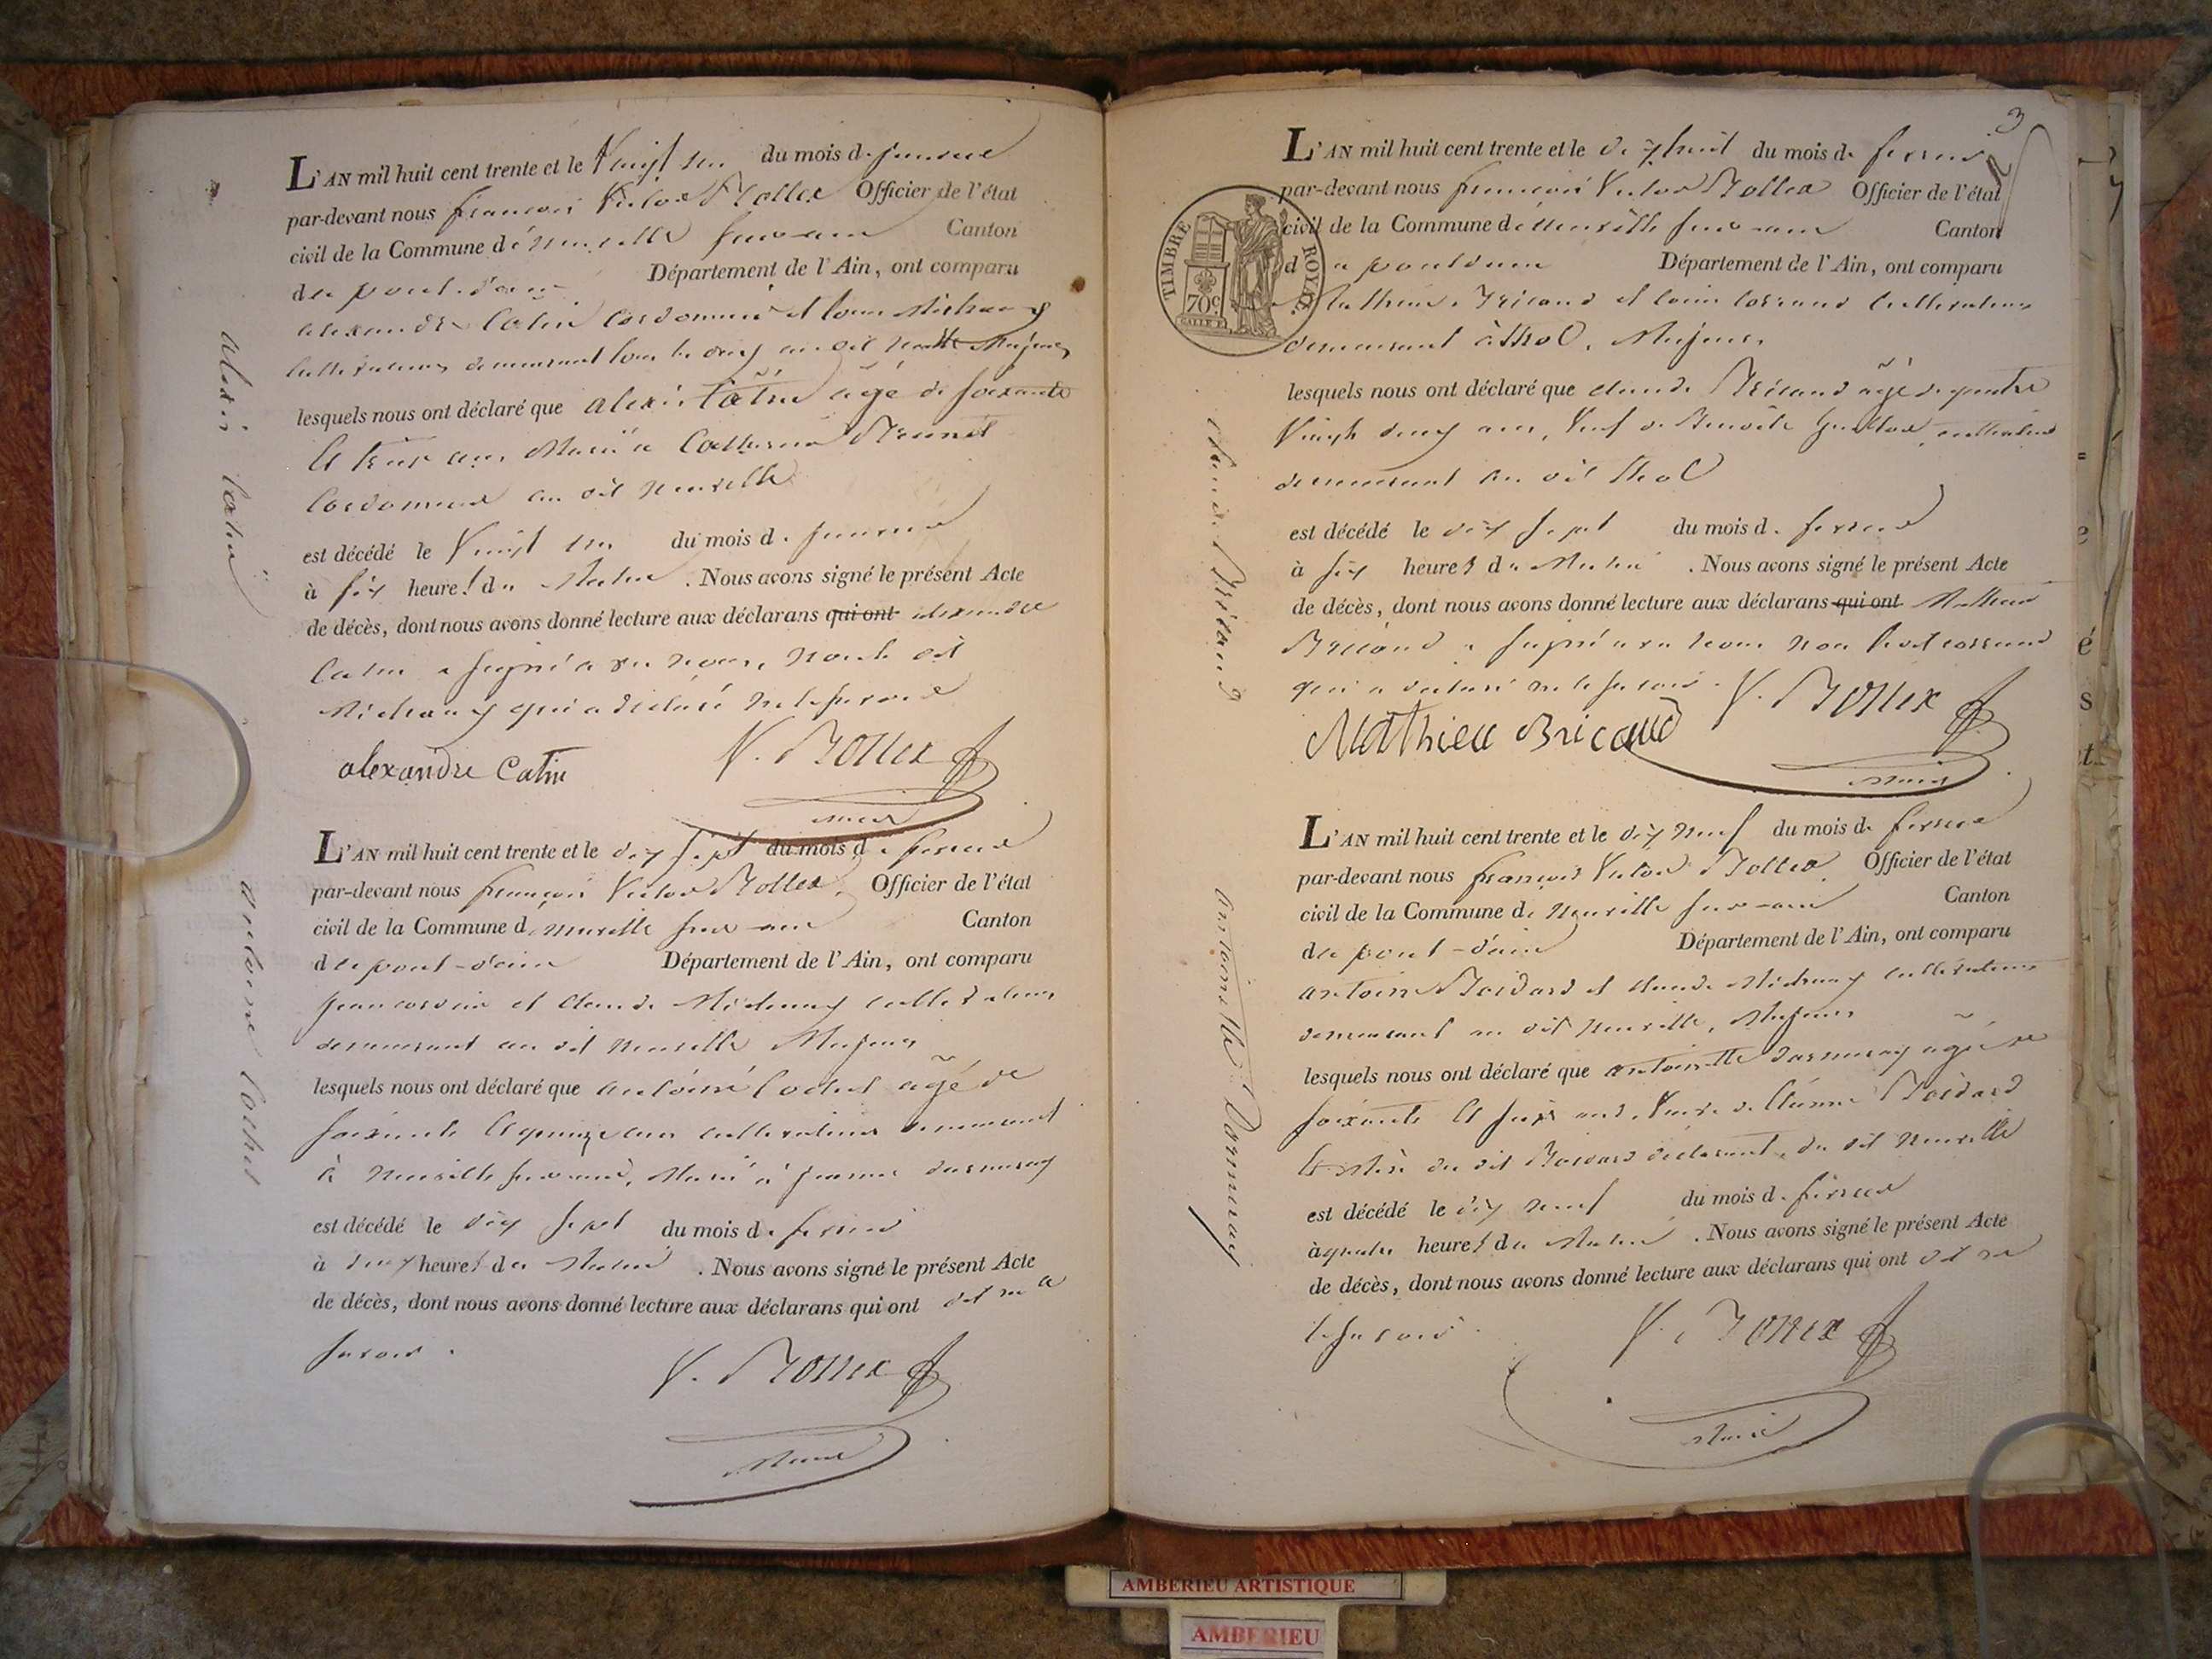 L'AN mil huit cent trente et le Vingt un du mois de janvier
par-devant nous françois Victor Bollex Officier de l'état
civil de la Commune de neuville sur-ain Canton
de pont-d'ain Département de l'Ain, ont comparu
alexandre Catin Cordonnier et louis Michaux
cultivateurs demeurant tous les deux au dit neuville Majeurs
lesquels nous ont déclaré que alexis Catin âgé de soixante
et trois ans Marié à Catherine
Cordonnier au dit neuville
est décédé le Vingt un du mois de janvier
à six heures du Matin. Nous avons signé le présent Acte
de décès, dont nous avons donné lecture aux déclarans qui ont alexandre
Catin a signé avec nous, non le dit
Michaux qui a déclaré ne le savoir
alexandre Catin V. Bollex
Maire
alexis Catin
L'AN mil huit cent trente et le dix sept du mois de fevrier
par-devant nous françois Victor Bollex Officier de l'état
civil de la Commune de neuville sur-ain Canton
de pont-d'ain Département de l'Ain, ont comparu
jean et claude Michaux cultivateurs
demeurant au dit neuville Majeurs
lesquels nous ont déclaré que antoine Cochet âgé de
soixante et quinze ans cultivateur demeurant
à neuville sur-ain, Marié à jeanne darmeray
est décédé le dix sept du mois de fevrier
à deux heures du Matin. Nous avons signé le présent Acte
de décès, dont nous avons donné lecture aux déclarans qui ont dit ne le
savoir.
V. Bollex
Maire
antoine Cochet
3
L'AN mil huit cent trente et le dix huit du mois de fevrier
par-devant nous françois Victor Bollex Officier de l'état
civil de la Commune de neuville sur-ain Canton
de pontdain Département de l'Ain, ont comparu
TIMBRE ROYAL
70c.
Mathieu Bricaud et louis cultivateurs
demeurant à thol, Majeurs
lesquels nous ont déclaré que claude Bricaud âgé de quatre
Vingt deux ans, Veuf de Benoite cultivateur
demeurant au dit thol
est décédé le dix sept du mois de fevrier
à six heures du Matin. Nous avons signé le présent Acte
de décès, dont nous avons donné lecture aux déclarans qui ont Mathieu
Bricaud a signé avec nous non le dit
qui a déclaré ne le savoir.
V. Bollex
Mathieu Bricaud
Maire
claude Bricaud
L'AN mil huit cent trente et le dix neuf du mois de fevrier
par-devant nous françois Victor Bollex Officier de l'état
civil de la Commune de Neuville sur-ain Canton
de pont-d'ain Département de l'Ain, ont comparu
antoine Boidard et claude Michaux cultivateurs
demeurant au dit neuville, Majeurs
lesquels nous ont déclaré que antoinette darmeray agée de
soixante et six ans, Veuve de étienne Boidard
et Mère du dit Boidard déclarant, du dit neuville
est décédé le dix neuf du mois de fevrier
à quatre heures du Matin. Nous avons signé le présent Acte
de décès, dont nous avons donné lecture aux déclarans qui ont dit ne
le savoir.
V. Bollex
Maire
antoinette Darmeray
AMBERIEU ARTISTIQUE
AMBERIEU